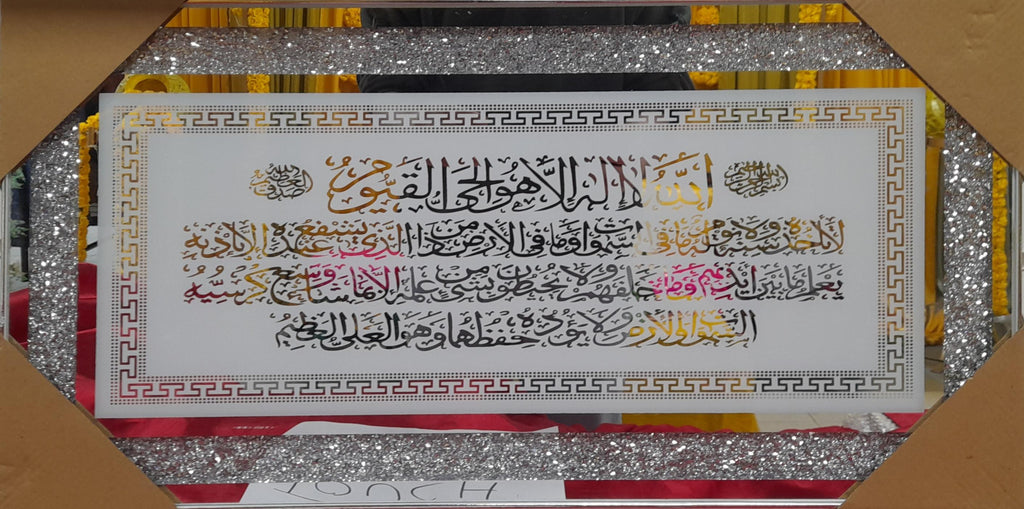 بسم الله الرحمن الرحيم
الله لا إله إلا هو الحي القيوم
لا تأخذه سنة ولا نوم له ما في السموات وما في الأرض من ذا الذي يشفع عنده إلا بإذنه
يعلم ما بين أيديهم وما خلفهم ولا يحيطون بشيء من علمه إلا بما شاء وسع كرسيه
السموات والأرض ولا يؤده حفظهما وهو العلي العظيم